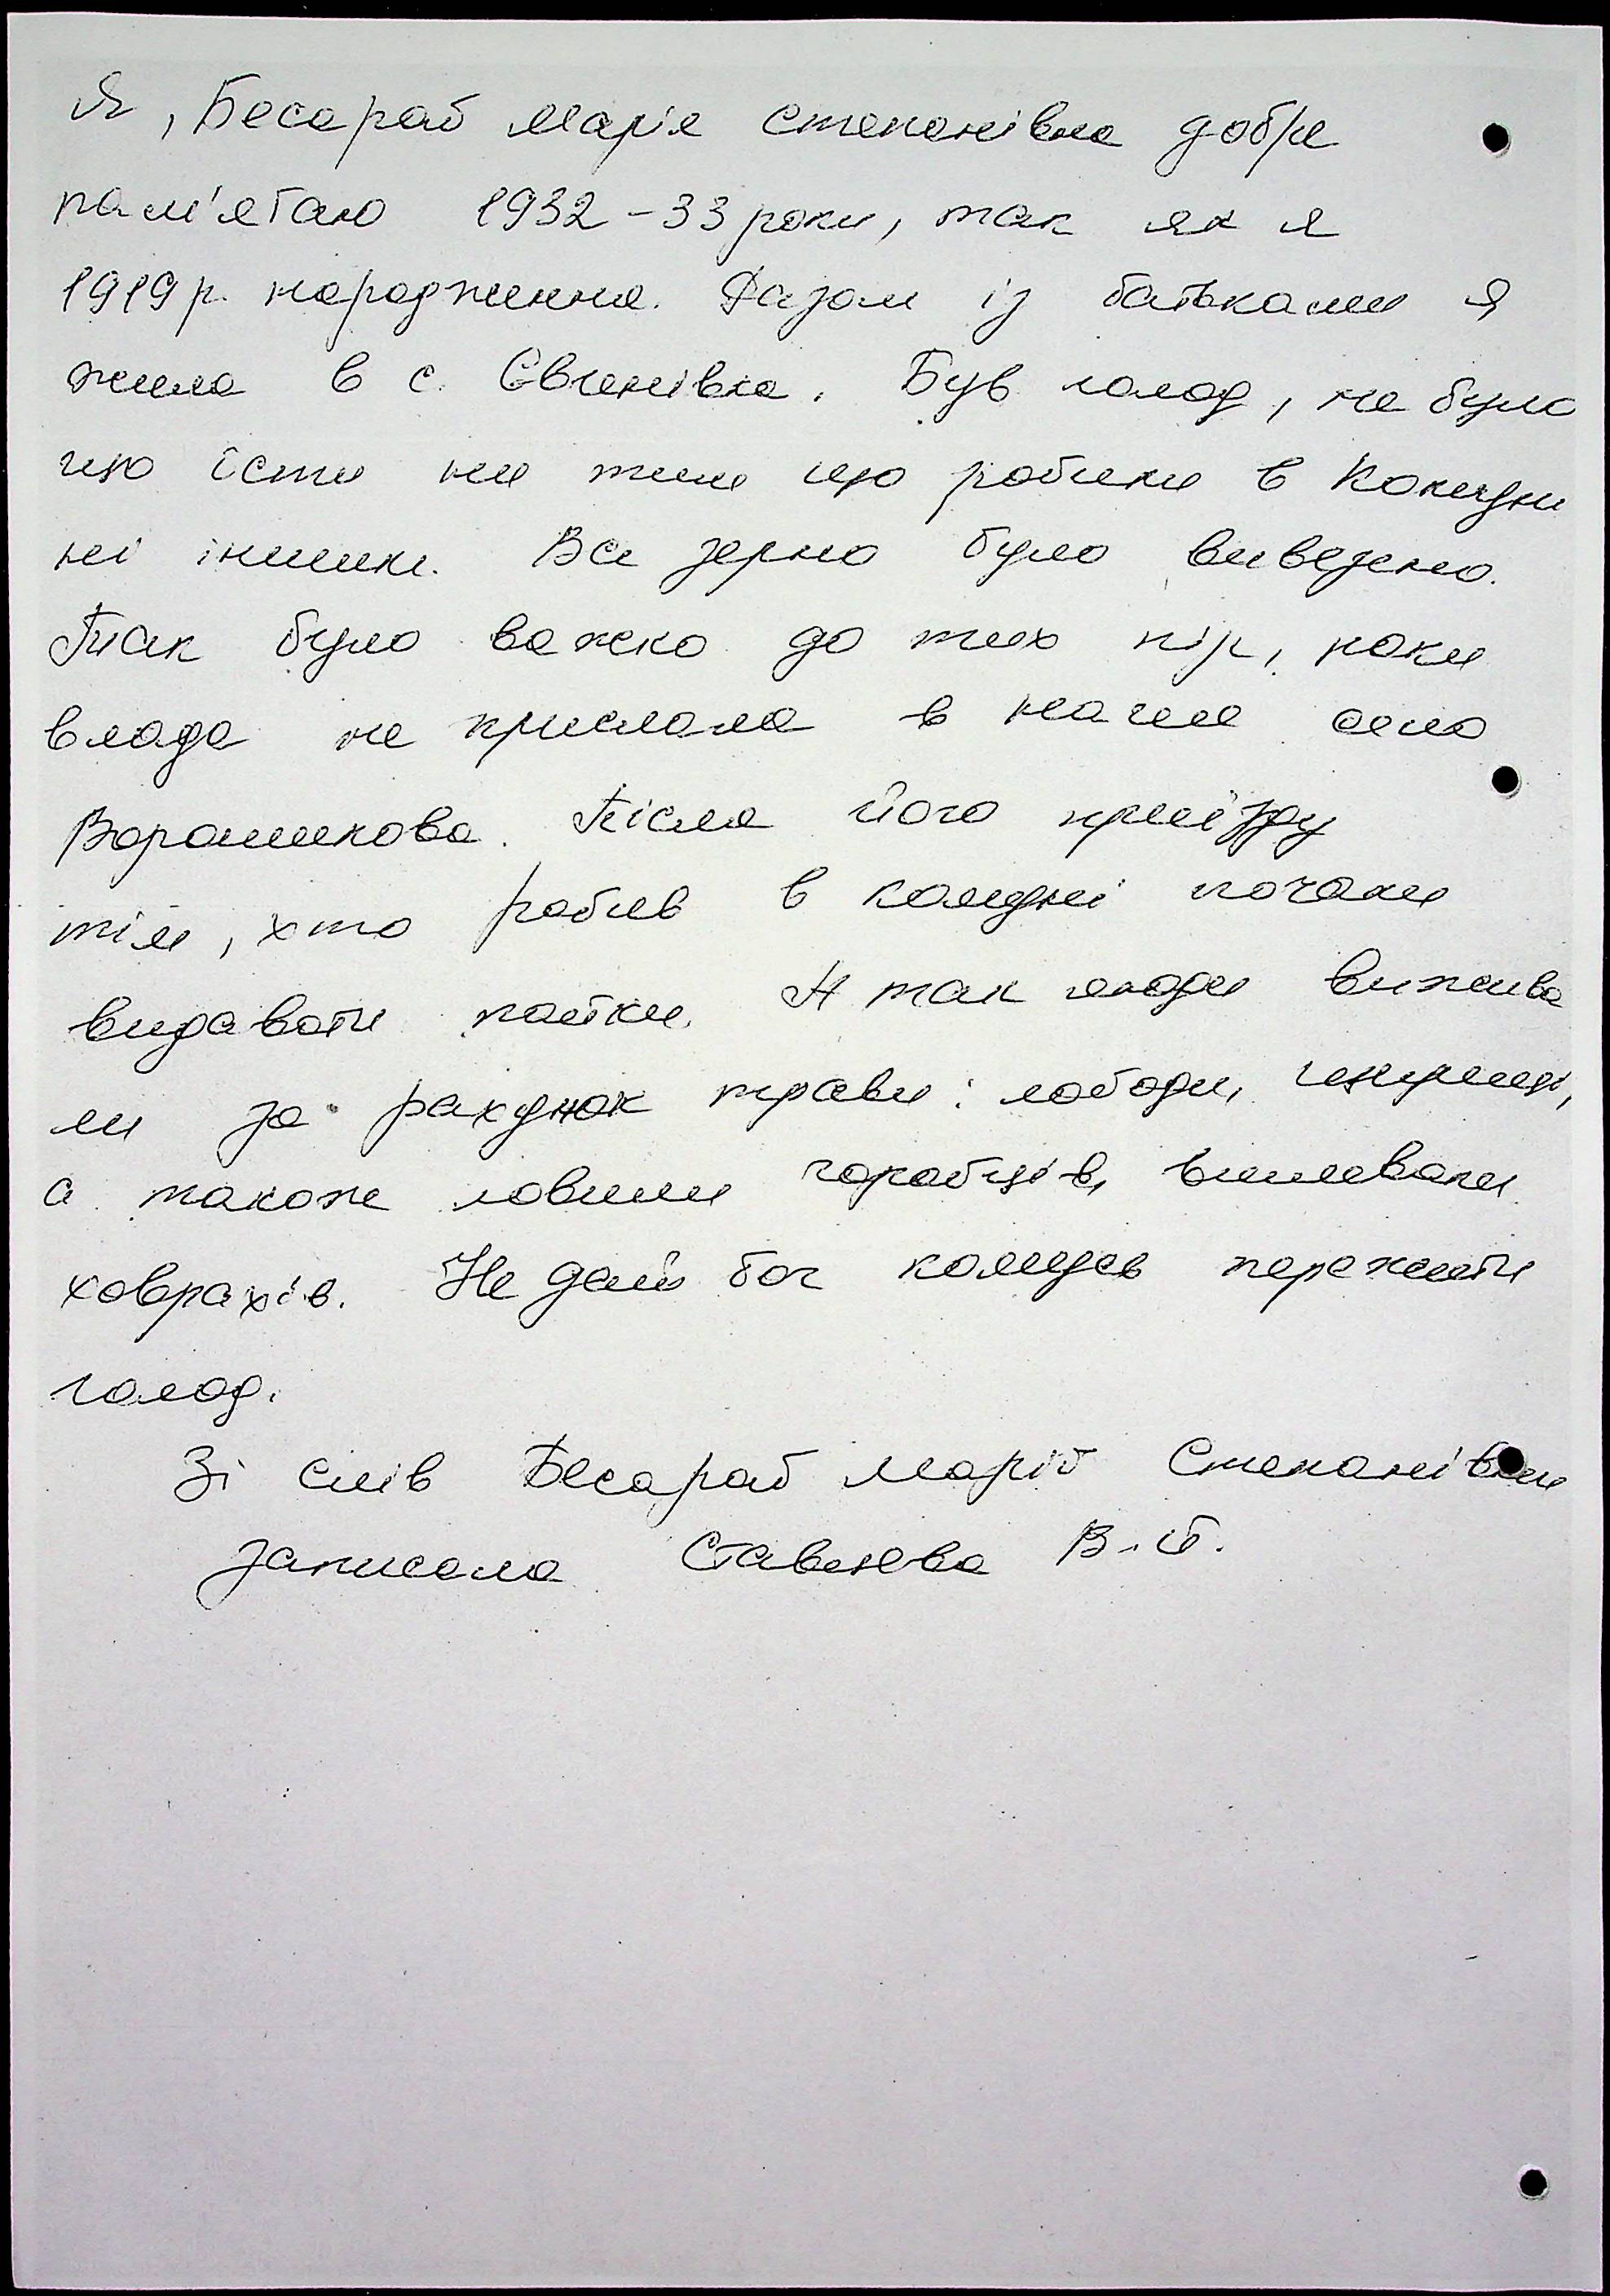 Я, Бесараб Марія Степанівна добре
пам'ятаю 1932-33 роки, так як я
1919 р. народження. Разом із батьками я
жила в с. Євгенівка. Був голод, не було
що їсти ни тим що робили в Комуни
ні іншим. Все зерно було вивезено.
Так було важко до тих пір, поки
влада не прислала в наше село
Ворошилова. Після його приїзду
тім, хто робив в комуні почали
видавати пайки. А так люди вижива
ли за рахунок трави: лободи,
а також ловили горобців, виливали
ховрахів. Не дай бог комусь пережити
голод.
Зі слів Бесараб Марії Степанівни
записала В.